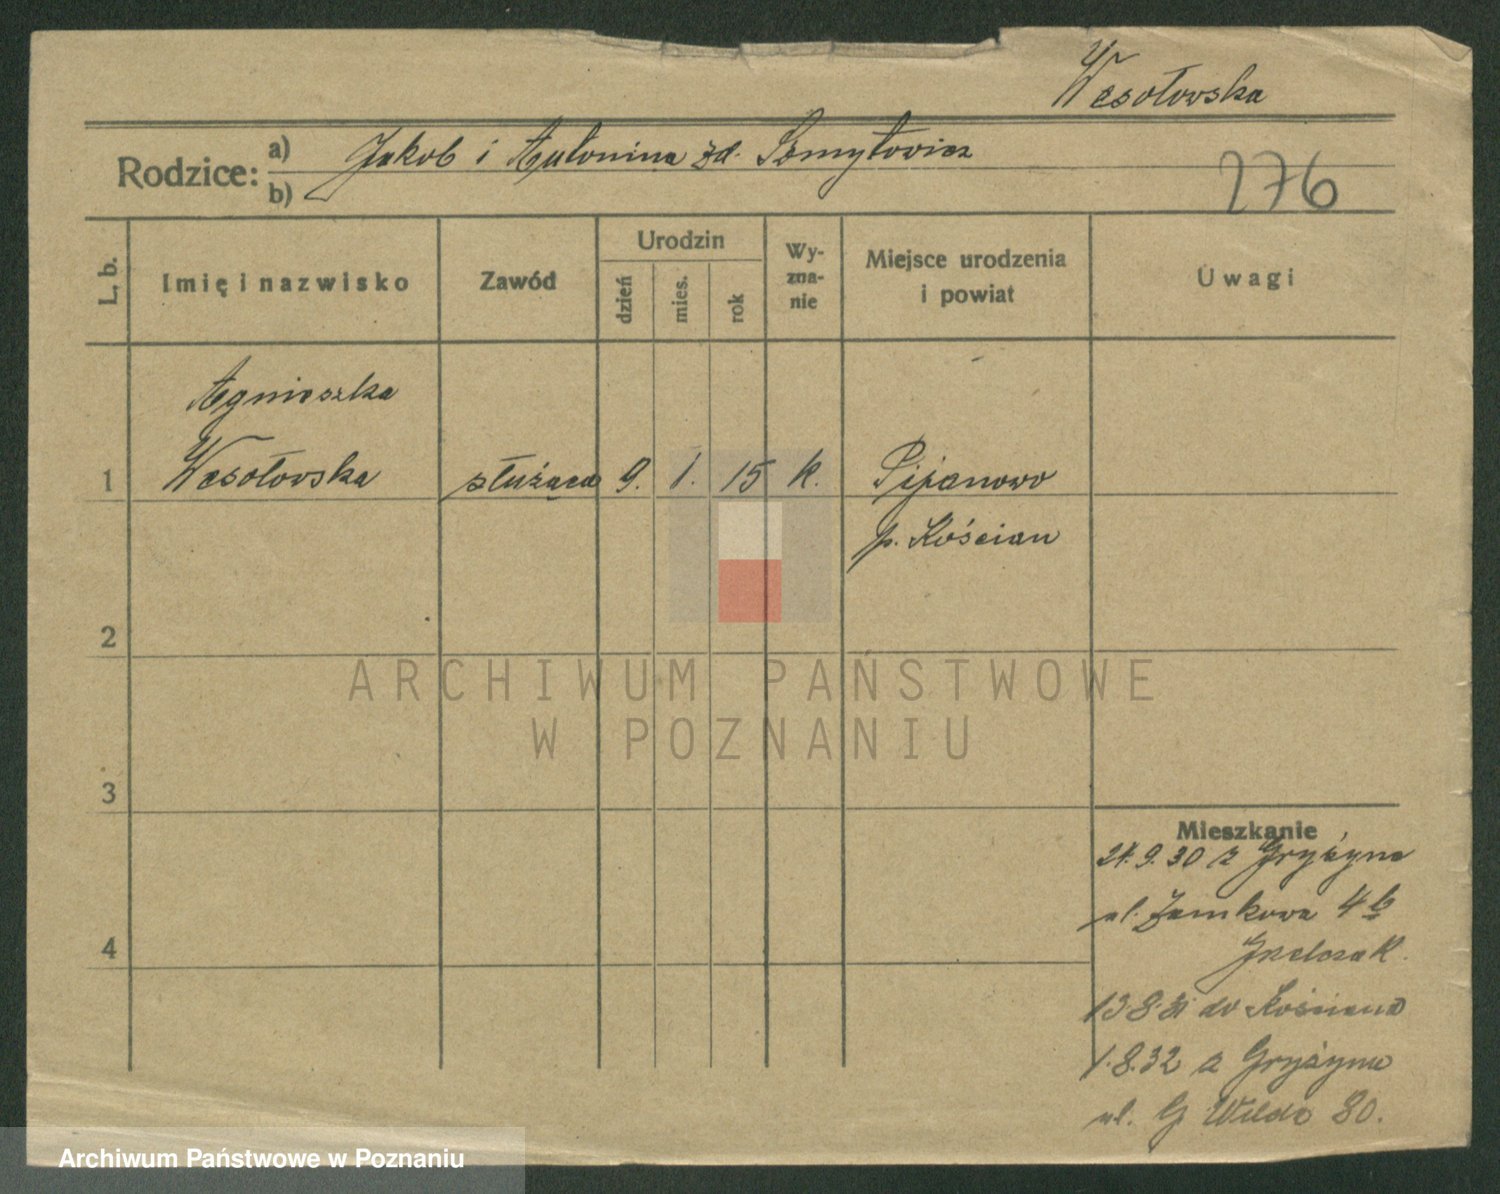 Wesołowska
Rodzice:
a) Jakob i Antonina zd. Szmyłowicz
b)
276
L. b.
Imię i nazwisko
Zawód
Urodzin
dzień
mies.
rok
Wy-
zna-
nie
Miejsce urodzenia
i powiat
Uwagi
Agnieszka
1 Wesołowska służąca 9. 1. 15 k. Pijanowo
p. Kościan
2
ARCHIWUM PAŃSTWOWE
W POZNANIU
3
Mieszkanie
24.9.30 z Gryżyna
ul. Zamkowa 4b
4
13.8.31 do Kościana
1.8.32 z Gryżyna
ul. G Wilda 80.
Archiwum Państwowe w Poznaniu